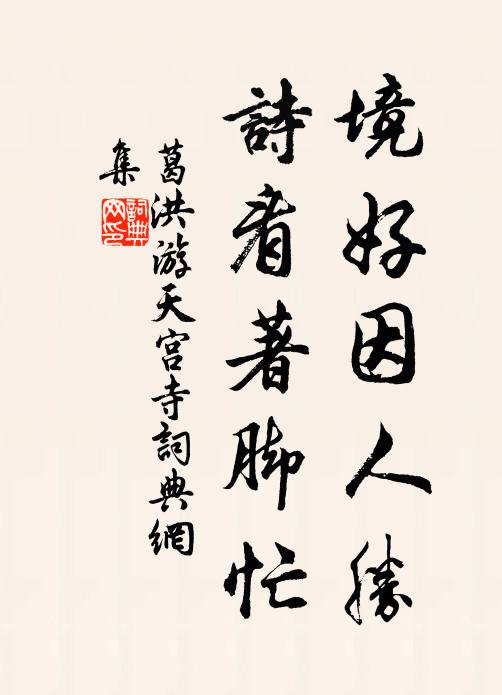 境好因人勝
詩看著脚忙
葛洪游天宮寺詞典網
集
詞典網印